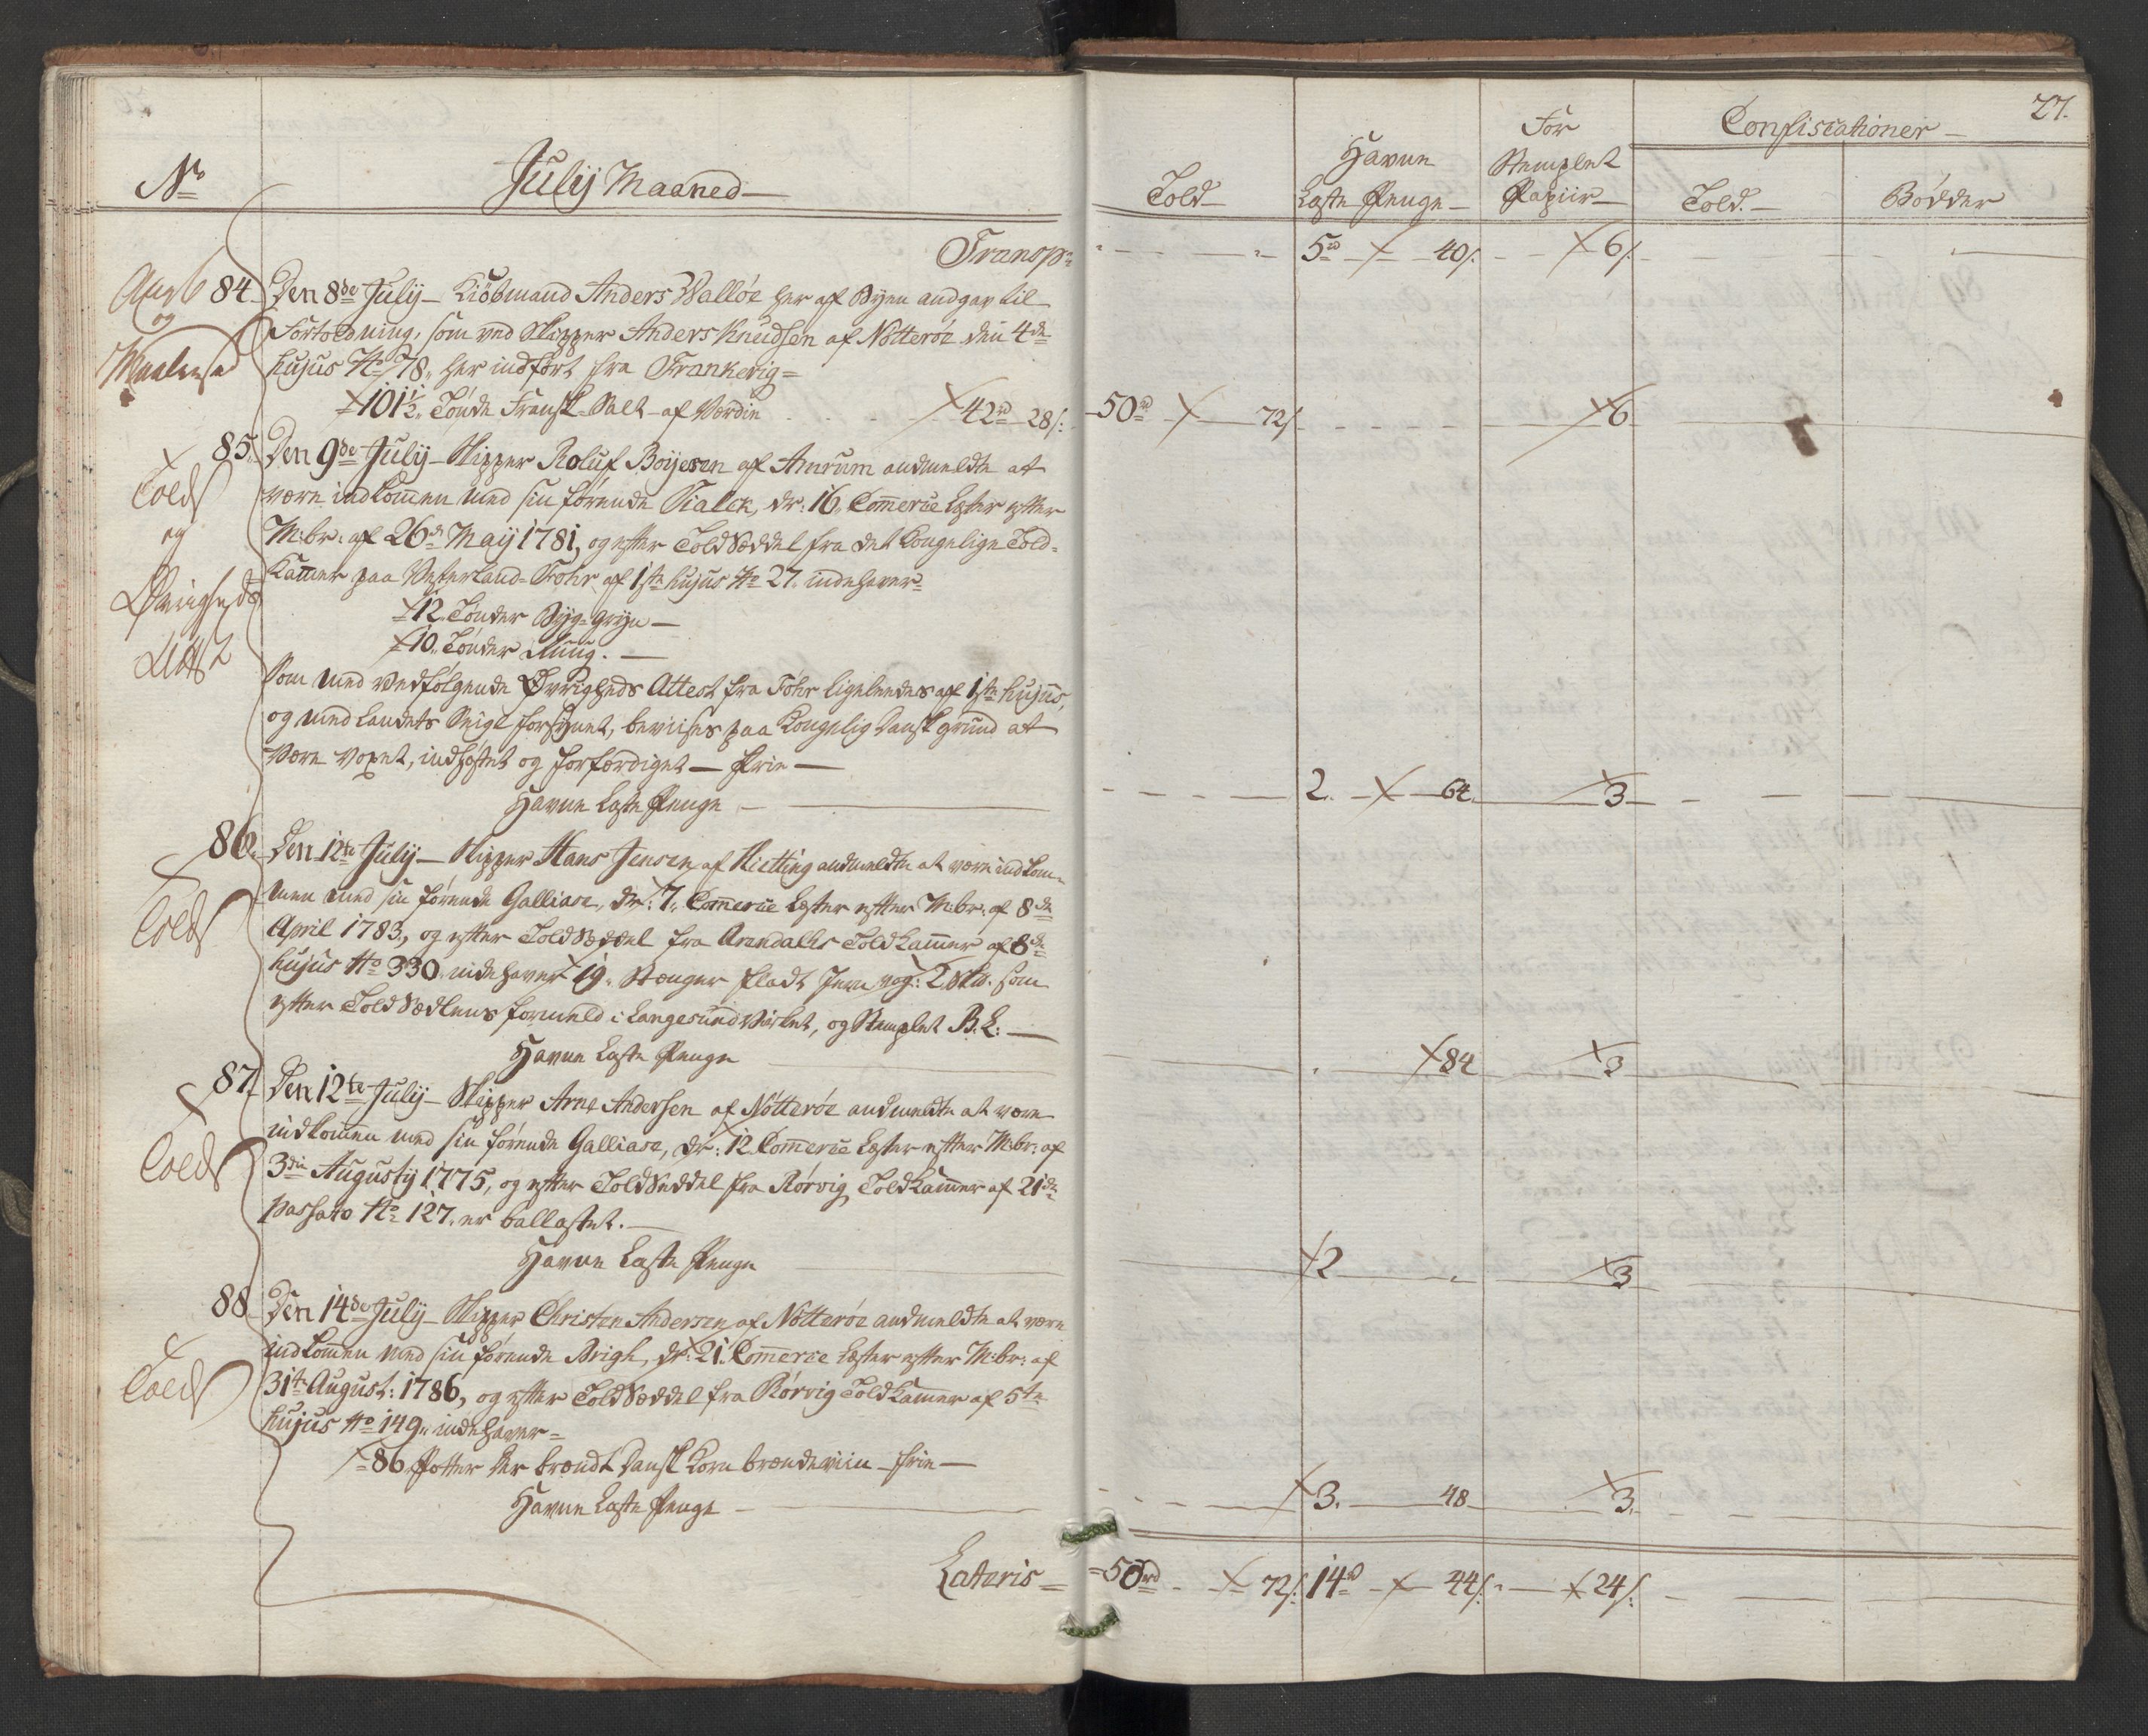 27.
No
Julij Maaned
Told
Havne Læste Penge
For Stemplet Papiir
Confiscationer
Told.
Bödder
Transp:
5rd 40/.
6/.
84. Den 8de Julij Kiöbmand Anders Walløe her af Byen andgav til
Ang6
og
Fortoldning, som ved Skipper Anders Knudsen af Nötteröe den 4de
hujus No 78, her indfört fra Frankerig
101½. Tönde Fransk Salt af Værdie 42rd 28/: 50rd 72/. 6
85. Den 9de Julij Skipper Roluf Boyesen af Amrum andmeldte at
Told
og
Øvrigheds
Att
være indkommen med sin förende Smack, dr: 16, Commerce Læster efter
M:br: af 26de Maij 1781, og efter Told Sæddel fra det Kongelige Told-
Kammer paa Vesterland-Föhr af 1ste hujus No 27. indehaver
12. Tönder Byg-gryn
10. Tönder Ruug.
Som med vedfölgende Øvrigheds Attest fra Föhr ligeledes af 1ste hujus,
og med Landets Seigl forsynet, beviises paa Kongelig Dansk grund at
være voxet, indhöstet og forfærdiget frie
Havne Læste Penge 2. 64. 3
86. Den 12te Julij Skipper Hans Jensen af Kietting andmeldte at være indkom-
Told
men med sin förende Galliase, dr: 7, Commerce Læster efter M:br: af 8de
April 1783, og efter Told Sæddel fra Arendalls Told Kammer af 8de
hujus No 330. indehaver 19. Stænger fladt Jern vog: 2 Sk℔. som
efter Told Sædlens formeld i Langesund Virket, og Stemplet B.L:
Havne Læste Penge 84 3
87. Den 12te Julij Skipper Arne Andersen af Nötteröe andmeldte at være
Told
indkommen med sin förende Galliase, dr: 12. Commerce Læster efter M:br: af
3die Augustij 1775, og efter Told Seddel fra Rörvig Told Kammer af 21de
passato No 127. er ballastet.
Havne Læste Penge 2 3
88. Den 14de Julij Skipper Christen Andersen af Nötteröe andmeldte at være
Told
indkommen med sin förende Brigh, dr: 21. Commerce Læster efter M:br: af
31te August: 1786, og efter Told Sæddel fra Rörvig Told Kammer af 5te
hujus No 149. indehaver
86 Potter her brændt Dansk Korn brændeviin frie
Havne Læste Penge 3. 48 3.
Lateris 50rd 72/. 14rd 44/. 24/.